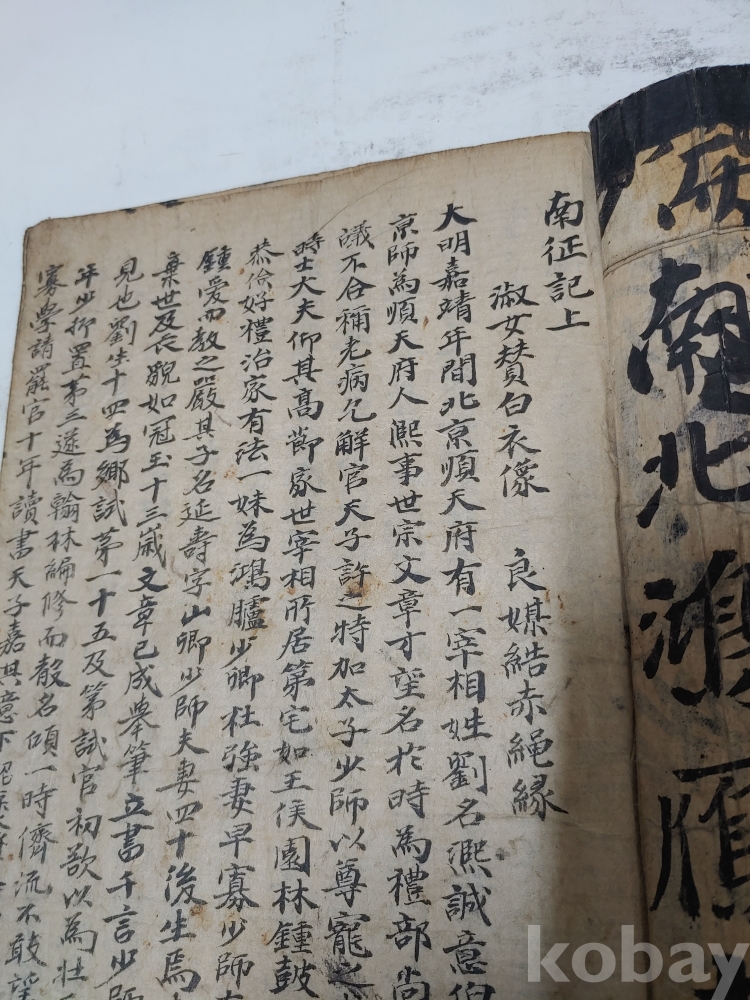 南征記上
淑女賛白衣像 良媒結赤繩緣
大明嘉靖年間北京順天府有一宰相姓劉名熙誠意伯
京師為順天府人熙事世宗文章才望名於時為禮部尚
議不合稱老病乞解官天子許之特加太子少師以尊寵之
時士大夫仰其高節家世宰相所居第宅如王侯園林鍾鼓
恭儉好禮治家有法一妹為鴻臚少卿杜強妻早寡少師
鍾愛而教之嚴其子名延壽字山卿少師夫妻四十後生焉
棄世及長貌如冠玉十三歲文章已成舉筆立書千言少師
見也劉生十四為鄉試第一十五及第試官初欲以為壯
年少抑置第三遂為翰林編修而聲名頌一時儕流不敢望
寡學請罷官十年讀書天子嘉其意下
南北鴻雁
kobay